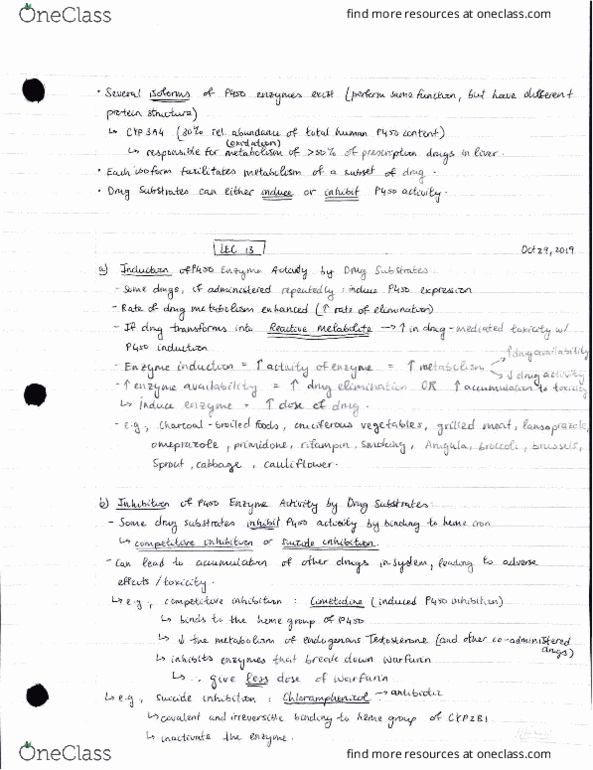 OneClass
find more resources at oneclass.com
• Several isoforms of P450 enzymes exist (perform same function, but have different
protein structure)
↳ CYP3A4 (30% rel. abundance of total human P450 content)
(oxidation)
↳ responsible for metabolism of >50% of prescription drugs in liver.
• Each isoform facilitates metabolism of a subset of drug.
• Drug Substrates can either induce or inhibit P450 activity.
LEC 13
Oct 29, 2019
a) Induction of P450 Enzyme Activity by Drug Substrates
- Some drugs, if administered repeatedly: induce P450 expression
- Rate of drug metabolism enhanced (↑ rate of elimination)
- If drug transforms into Reactive Metabolite → ↑ in drug-mediated toxicity w/
P450 induction
↑ drug availability
- Enzyme induction = ↑ activity of enzyme = ↑ metabolism
↓ drug activity
- ↑ enzyme availability = ↑ drug elimination OR ↑ accumulation to toxicity
↳ induce enzyme = ↑ dose of drug.
- e.g., Charcoal-broiled foods, cruciferous vegetables, grilled meat, lansoprazole,
omeprazole, primidone, rifampin, smoking, Arugula, broccoli, brussels,
Sprout, cabbage, cauliflower.
b) Inhibition of P450 Enzyme Activity by Drug Substrates
- Some drug substrates inhibit P450 activity by binding to heme iron
↳ competitive inhibition or suicide inhibition.
- Can lead to accumulation of other drugs in system, leading to adverse
effects/toxicity.
↳ e.g., competitive inhibition: Cimetidine (induced P450 inhibition)
↳ binds to the heme group of P450
↳ ↓ the metabolism of endogenous Testosterone (and other co-administered
drugs)
↳ inhibits enzymes that break down warfarin
↳ ∴ give less dose of warfarin.
↳ e.g., suicide inhibition: Chloramphenicol → antibiotic
↳ covalent and irreversible binding to heme group of CYP2B1
↳ inactivate the enzyme.
OneClass
find more resources at oneclass.com